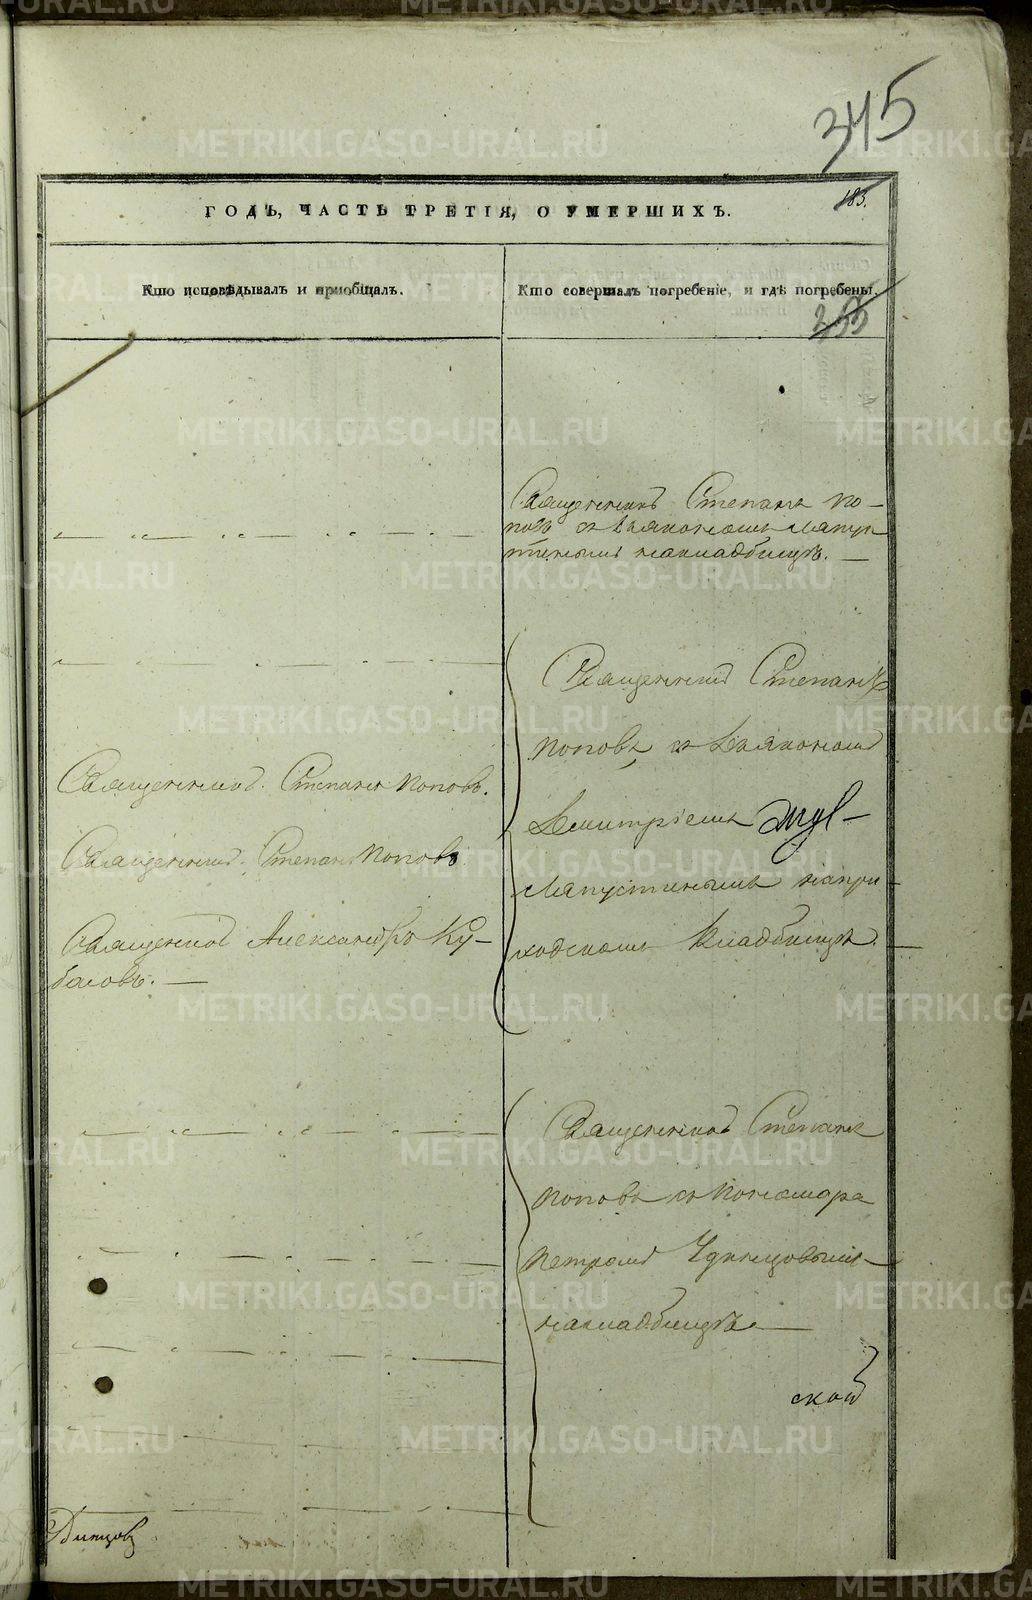 345
183.
ГОДЪ, ЧАСТЬ ТРЕТІЯ, О УМЕРШИХЪ.
Кто исповѣдывалъ и пріобщалъ.
Кто совершалъ погребеніе, и гдѣ погребены.
Священникъ Степанъ По-
повъ съ Діакономъ Лапус
тинымъ накладбищѣ. —
Священникъ Степанъ
Поповъ съ Діакономъ
Димитріемъ
Лапустинымъ напри-
ходскомъ Кладбищѣ. —
Священникъ Степанъ Поповъ.
Священникъ Степанъ Поповъ
Священникъ Александръ Ку-
басовъ. —
Священникъ Степанъ
Поповъ съ Пономаремъ
Петромъ Удинцовымъ
накладбищѣ. —
ской
METRIKI.GASO-URAL.RU